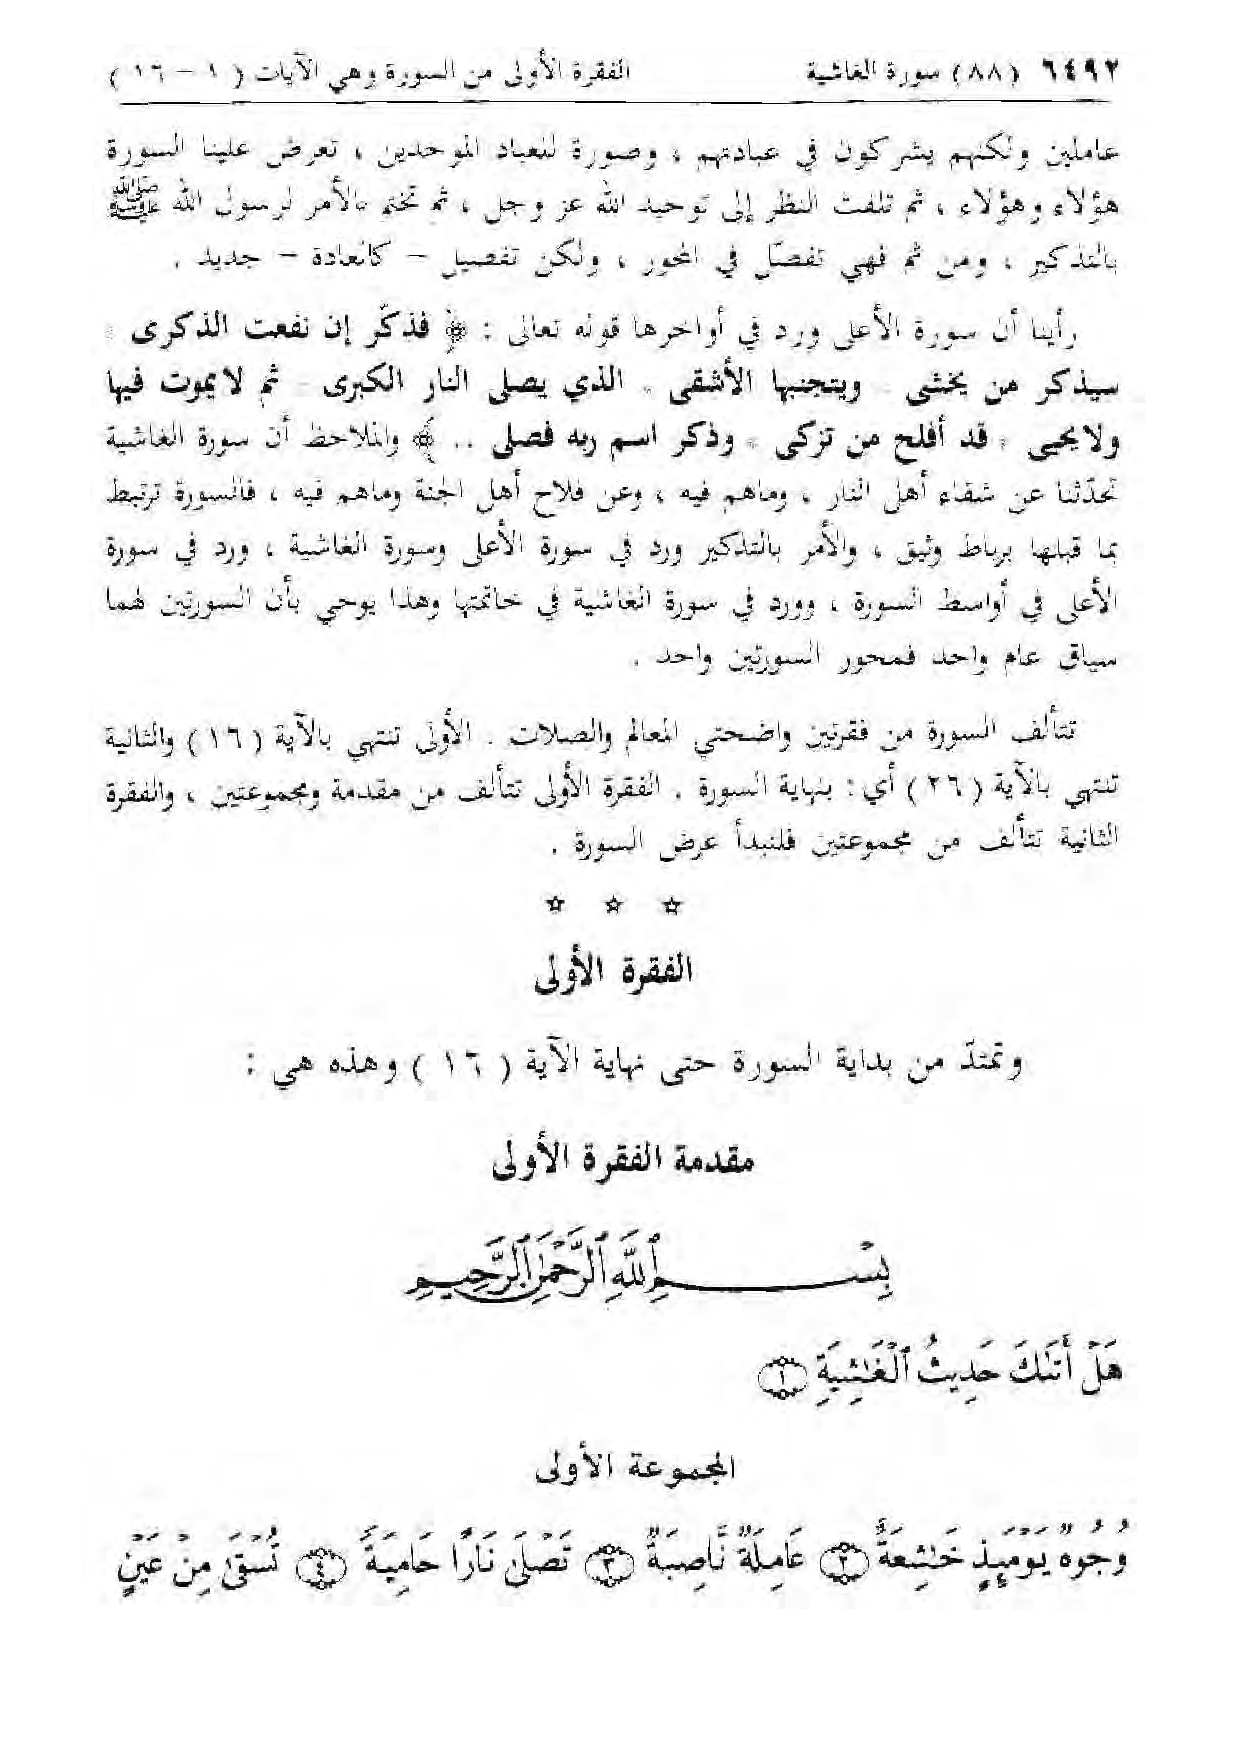 ٦٤٩٢ (٨٨) سورة الغاشية الفقرة الأولى من السورة وهي الآيات ( ١ – ١٦ )
عاملين ولكنهم يشركون في عبادتهم ، وصورة للعباد الموحدين ، تعرض علينا السورة
هؤلاء وهؤلاء ، ثم تلفت النظر إلى توحيد الله عز وجل ، ثم تختم بالأمر لرسول الله ﷺ
بالتذكير ، ومن ثم فهي تفصّل في المحور ، ولكن تفصيل – كالعادة – جديد .
رأينا أن سورة الأعلى ورد في أواخرها قوله تعالى : ﴿ فذكّر إن نفعت الذكرى *
سيذكر من يخشى * ويتجنبها الأشقى * الذي يصلى النار الكبرى * ثم لايموت فيها
ولايحيى * قد أفلح من تزكى * وذكر اسم ربه فصلى .. ﴾ والملاحظ أن سورة الغاشية
تحدّثنا عن شقاء أهل النار ، وماهم فيه ، وعن فلاح أهل الجنة وماهم فيه ، فالسورة ترتبط
بما قبلها برباط وثيق ، والأمر بالتذكير ورد في سورة الأعلى وسورة الغاشية ، ورد في سورة
الأعلى في أواسط السورة ، وورد في سورة الغاشية في خاتمتها وهذا يوحي بأن السورتين لهما
سياق عام واحد فمحور السورتين واحد .
تتألف السورة من فقرتين واضحتي المعالم والصلات . الأولى تنتهي بالآية ( ١٦ ) والثانية
تنتهي بالآية ( ٢٦ ) أي : بنهاية السورة . الفقرة الأولى تتألف من مقدمة ومجموعتين ، والفقرة
الثانية تتألف من مجموعتين فلنبدأ عرض السورة .
☆ ☆ ☆
الفقرة الأولى
وتمتدّ من بداية السورة حتى نهاية الآية ( ١٦ ) وهذه هي :
مقدمة الفقرة الأولى
بِسْمِ ٱللَّهِ ٱلرَّحْمَٰنِ ٱلرَّحِيمِ
هَلْ أَتَىٰكَ حَدِيثُ ٱلْغَٰشِيَةِ ١
المجموعة الأولى
وُجُوهٌ يَوْمَئِذٍ خَٰشِعَةٌ ٢ عَامِلَةٌ نَّاصِبَةٌ ٣ تَصْلَىٰ نَارًا حَامِيَةً ٤ تُسْقَىٰ مِنْ عَيْنٍ